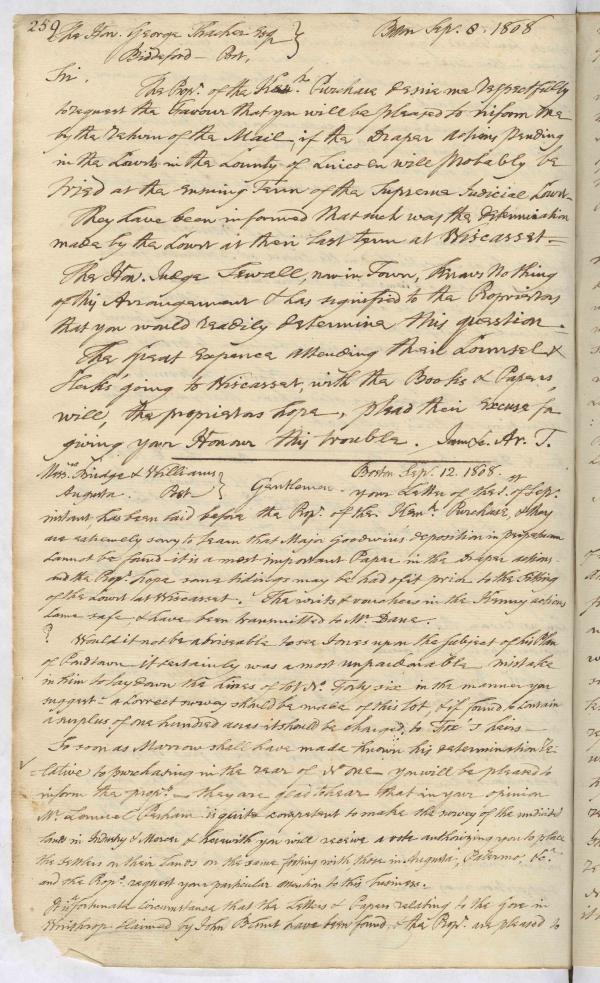 259
The Hon. George Thacher Esq } Bosn Sepr. 8. 1808
Biddeford – Post,
Sir,
The Propr. of the Kenc. Purchase desire me respectfully
to request the favour that you will be pleased to inform me
by the return of the Mail, if the Draper actions pending
in the Courts in the County of Lincoln will probably be
tried at the ensuing Term of the Supreme Judicial Court –
They have been informed that such was the determination
made by the Court at their last term at Wiscasset –
The Hon. Judge Sewall, now in Town, knows nothing
of this Arrangement & has signified to the Proprietors
that you would readily determine this question.
The great expence attending their Counsel &
Clerks going to Wiscasset, with the Books & Papers,
will, the proprietors hope, plead their excuse for
giving your Honour this trouble. I am &c. Ar. T.
Messrs Bridge & Williams } Boston Sepr. 12. 1808.
Augusta. Post
Gentlemen – your Letter of the 1st. of Sepr.
instant, has been laid before the Propr. of the Kenc. Purchase, & they
are extremely sorry to learn that Major Goodwins deposition in perpetuam
cannot be found – it is a most important Paper in the Draper actions –
and the Propr. hope some tidings may be had of it prior to the sitting
of the Court at Wiscasset. The writs & vouchers in the Kenny actions
came safe & have been transmitted to Mr. Dane.
? Would it not be adviseable to see Jones upon the subject of his Plan
of it certainly was a most unpardonable mistake
in him to lay down the lines of lot No. Forty six in the manner you
suggest – a correct survey should be made of this lot, & if found to contain
a surplus of one hundred acres it should be charged to heirs –
So soon as Marrow shall have made known his determination re-
✓ lative to purchasing in the rear of No one you will be pleased to
inform the propr. – they are glad to hear that in your opinion
Mr. Lemuel Perham is quite competent to make the survey of the undivided
lands in Industry & Mercer & herewith you will receive a vote authorizing you to place
the settlers on their lands on the same footing with those in Augusta, Palermo, &c.
and the Propr. request your particular attention to this business.
It is fortunate circumstance that the Letters & Papers relating to the Gore in
Winthrop claimed by John Blunt have been found, & the Propr. are pleased to